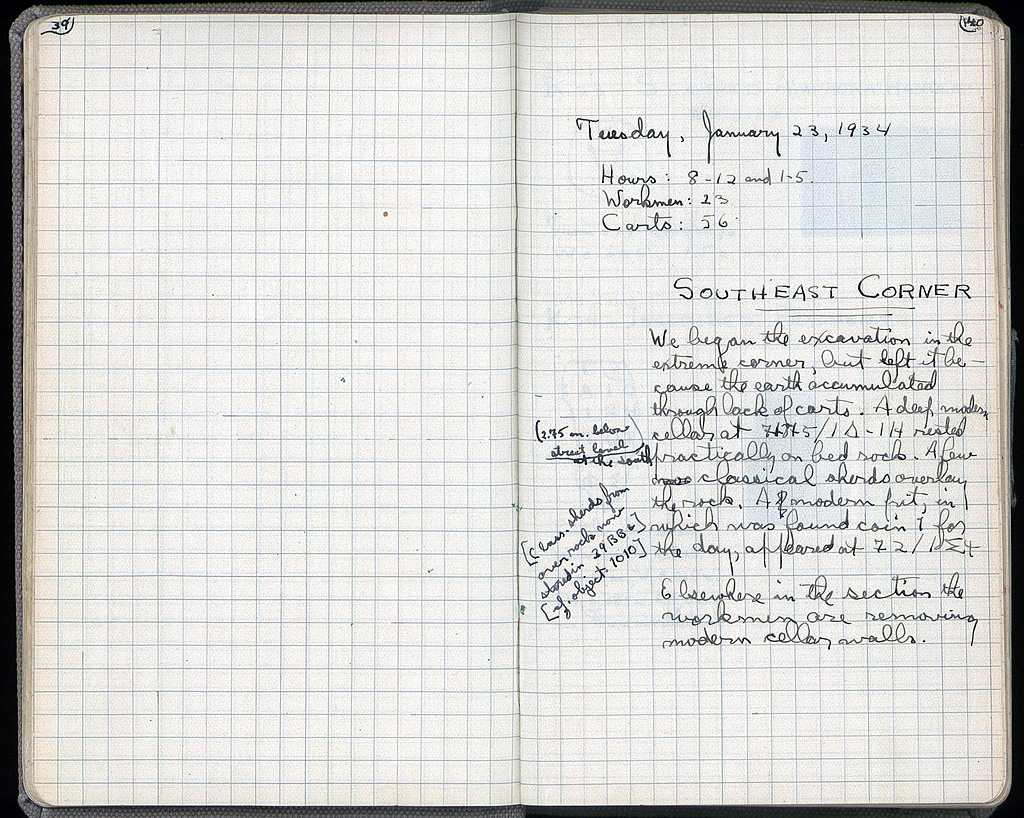 39
140
Tuesday, January 23, 1934
Hours: 8-12 and 1-5.
Workmen: 23
Carts: 56
SOUTHEAST CORNER
We began the excavation in the
extreme corner, but left it be-
cause the earth accumulated
through lack of carts. A deep modern
cellar at 5/ΙΔ-ΙΗ rested
practically on bed rock. A few
classical sherds overlay
the rock. A modern pit, in
which was found coin 1 for
the day, appeared at 72/
Elsewhere in the section the
workmen are removing
modern cellar walls.
(2.75 m. below
street level
at the south)
[Class. sherds from
over rock now
stored in 39 BB 6]
[cf. object: 1010]